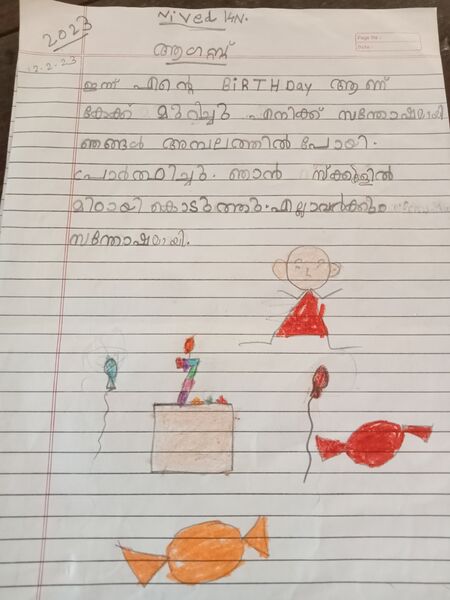 Nived K.N.
2023
Page No :
Date :
ആഗസ്റ്റ്
12.2.23
ഇന്ന് എന്റെ BiRTHDay ആണ്
കേക്ക് മുറിച്ചു എനിക്ക് സന്തോഷമായി
ഞങ്ങൾ അമ്പലത്തിൽ പോയി.
പ്രാർത്ഥിച്ചു. ഞാൻ സ്ക്കൂളിൽ
മിഠായി കൊടുത്തു. എല്ലാവർക്കും
സന്തോഷമായി.
7